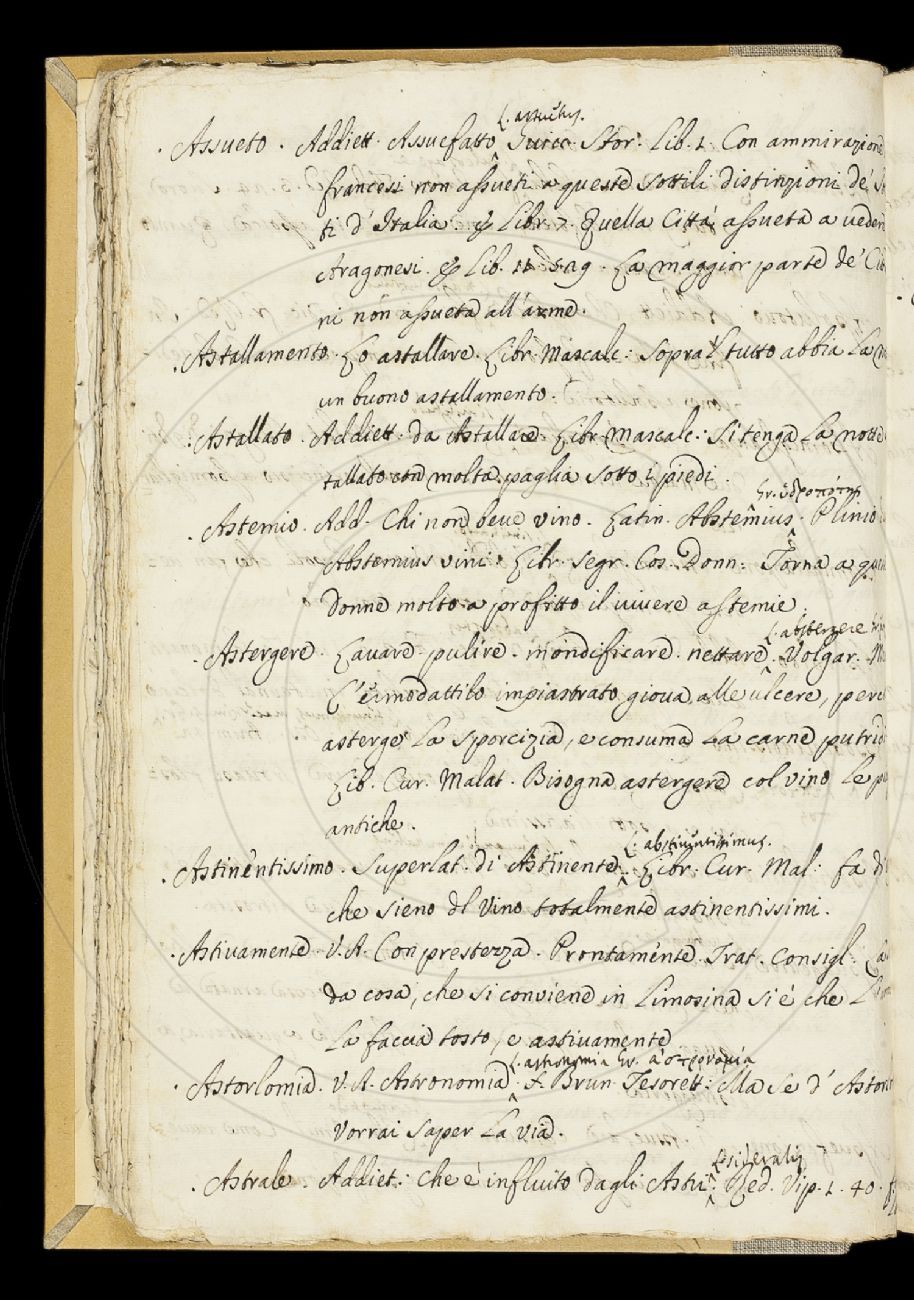 L. assuetus.
Assueto. Addiett. Assuefatto. Guicc. Stor. Lib. 1. Con ammirazione
francesi non assueti a queste sottili distinzioni de'
ti d'Italia. E Libr. 7. Quella Città assueta a veder
Aragonesi. E Lib. 11. 519. La maggior parte de' Cit
ni non assueta all'arme.
Astallamento. Lo astallare. Libr. Mascalc: Sopra 'l tutto abbia la
un buono astallamento.
Astallato. Addiett. da Astallare. Libr. Mascalc: Si tenga la notte
tallato con molta paglia sotto i piedi.
Gr. ὑδροπότης
Astemio. Add. Chi non beve vino. Latin. Abstemius. Plinio
Abstemius vini. Libr. Segr. Cos. Donn: Torna a
donne molto a profitto il vivere astemie.
L. abstergere
Astergere. Lavare. pulire. mondificare. nettare. Volgar.
L'ermodattilo impiastrato giova alle ulcere, per
asterge la sporcizia, e consuma la carne putrid
Lib. Cur. Malat. Bisogna astergere col vino le
antiche.
L. abstinentissimus.
Astinentissimo. Superlat. di Astinente. Libr. Cur. Mal: fa
che sieno del vino totalmente astinentissimi.
Astivamente. V. A. Con prestezza. Prontamente. Trat. Consigl:
da cosa, che si conviene in Limosina si è che
La faccia tosto, e astivamente
L. astronomia Gr. ἀστρονομία
Astorlomia. V. A. Astronomia. F. Brun. Tesorett: Ma se d'Astor
vorrai saper la via.
L. sideralis
Astrale. Addiet: Che è influito dagli Astri. Red. Vip. 1. 40.